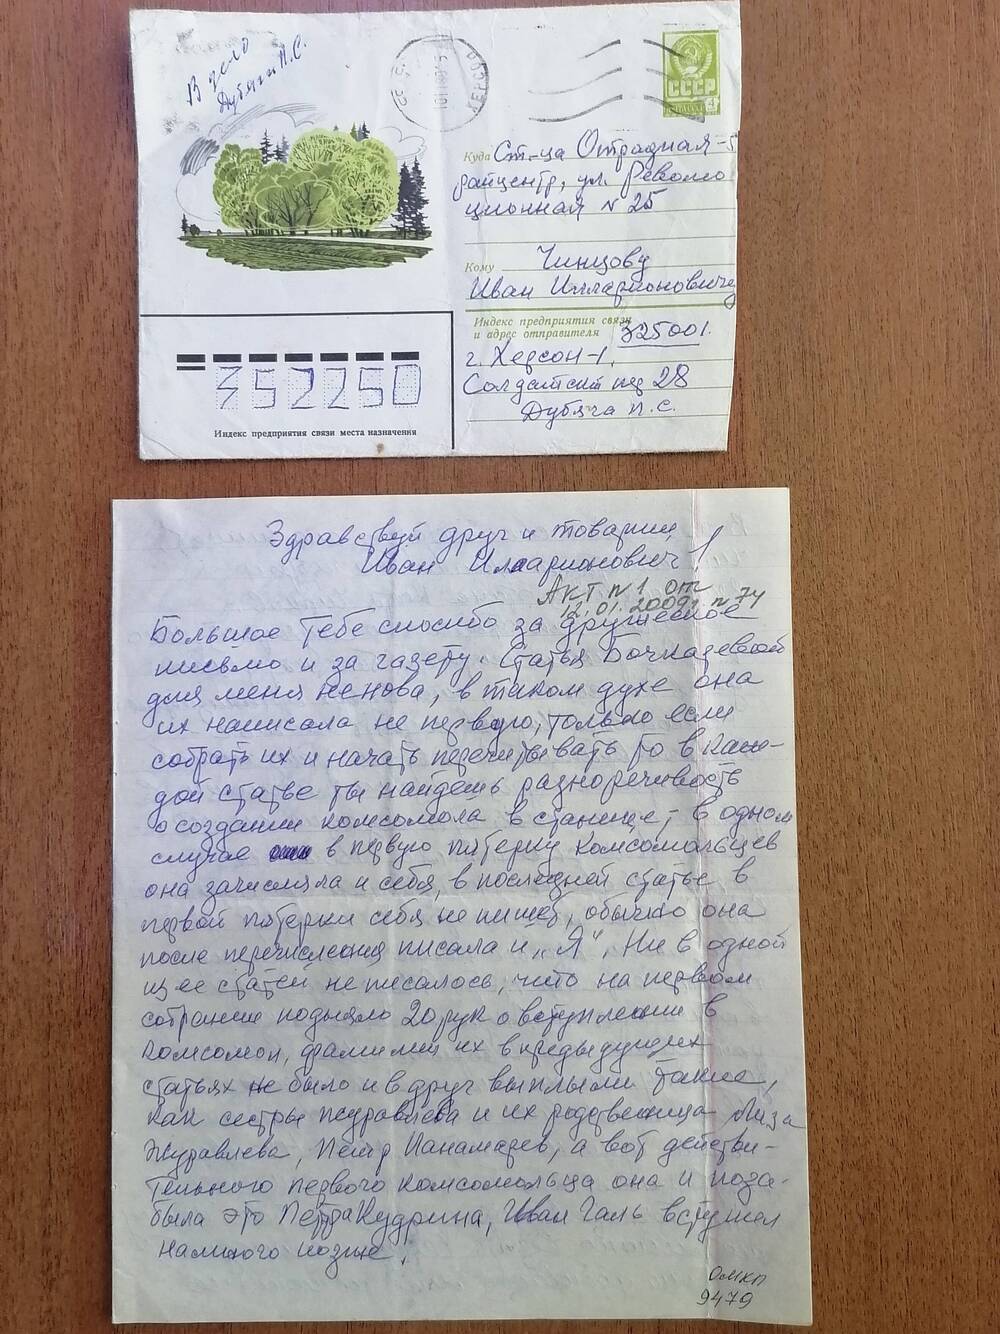 В дело
Дубяги П.С.
ХЕРСОН
СССР
4
Куда Ст-ца Отрадная-5
райцентр, ул. Револю
ционная N 25
Кому Чинцову
Иван Илларионовичу
Индекс предприятия связи
и адрес отправителя 325001.
г. Херсон-1,
Солдатский пер 28
Дубяга П.С.
352250
Индекс предприятия связи места назначения
Здравствуй друг и товарищ
Иван Илларионович!
Акт N 1 от
12.01.2009г. N 74
Большое тебе спосибо за дружеское
письмо и за газету. Статья Бочкаревой
для меня не нова, в таком духе она
их написала не первую, только если
собрать их и начать перечитывать то в каж-
дой статье ты найдешь разноречивость
о создании комсомола в станице, в одном
случае в первую пятерку комсомольцев
она зачисляла и себя, в последней статье в
первой пятерки себя не пишет, обычно она
после перечисления писала и „Я". Ни в одной
из ее статей не писалось, что на первом
собрании подняло 20 рук о вступлении в
комсомол, фамилии их в предыдущих
статьях не было и вдруг выплыли такие,
как сестры Журавлева и их родственица Лиза
Журавлева, Петр Панамарев, а вот действи-
тельного первого комсомольца она и поза-
была это Петра Кудрина, Иван Галь вступил
намного позже.
ОМКП
9479